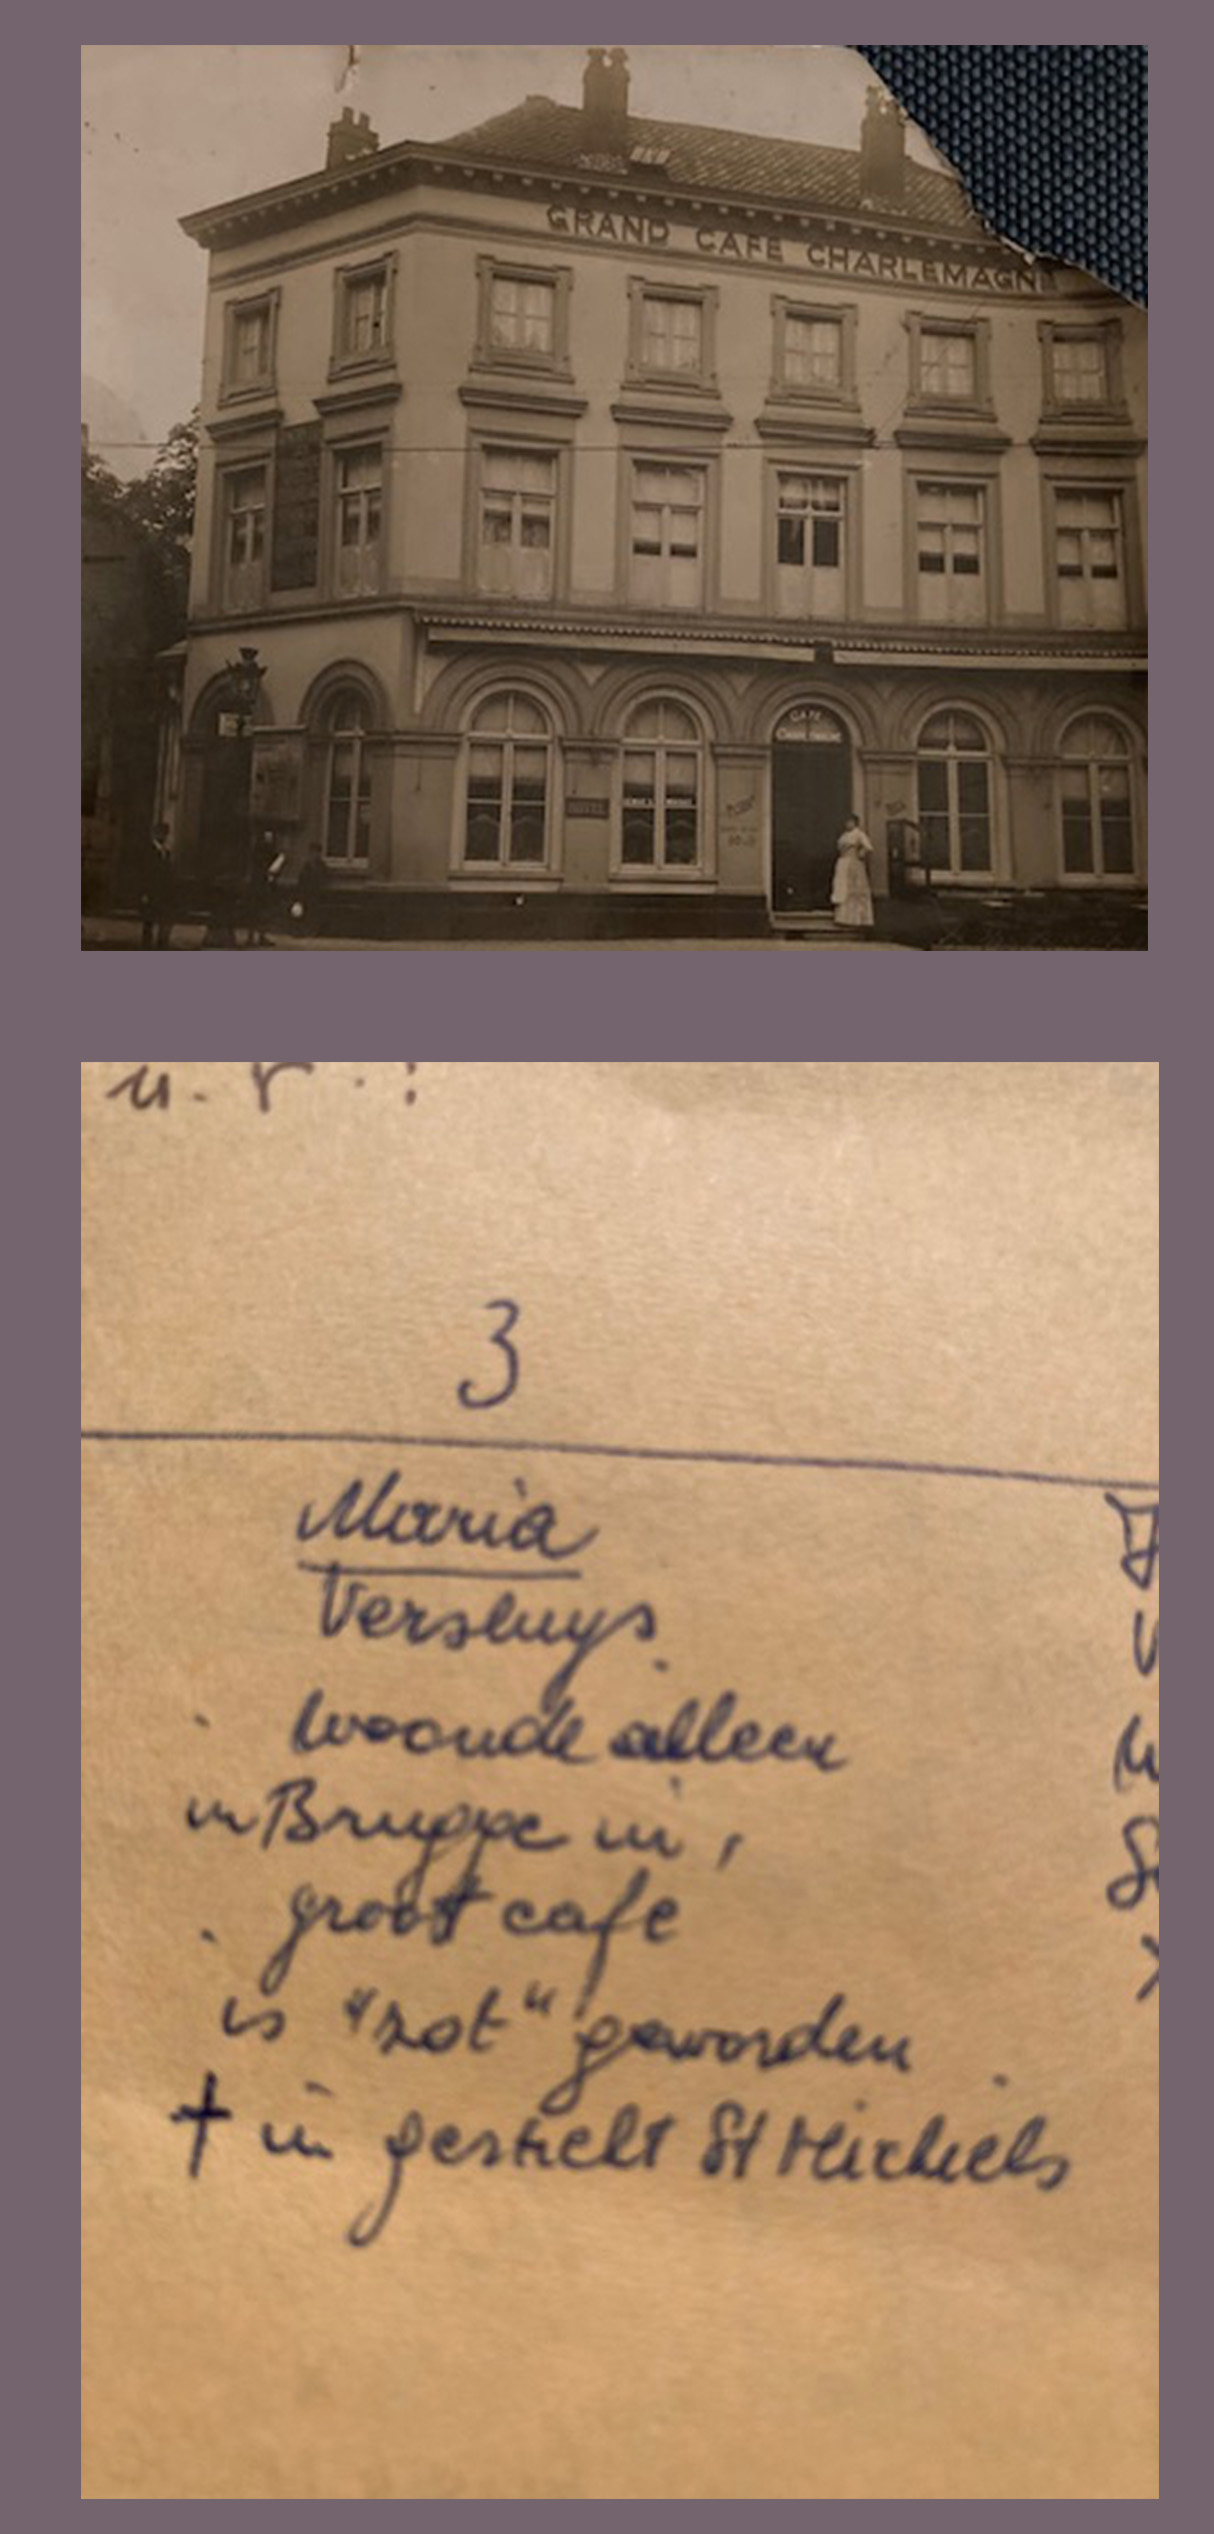 GRAND CAFE CHARLEMAGNE
CAFE
CHARLEMAGNE
u. r. :
3
Maria
Versluys.
. woonde alleen
in Brugge in '
. groot cafe
is "zot" geworden.
† in gesticht St Michiels